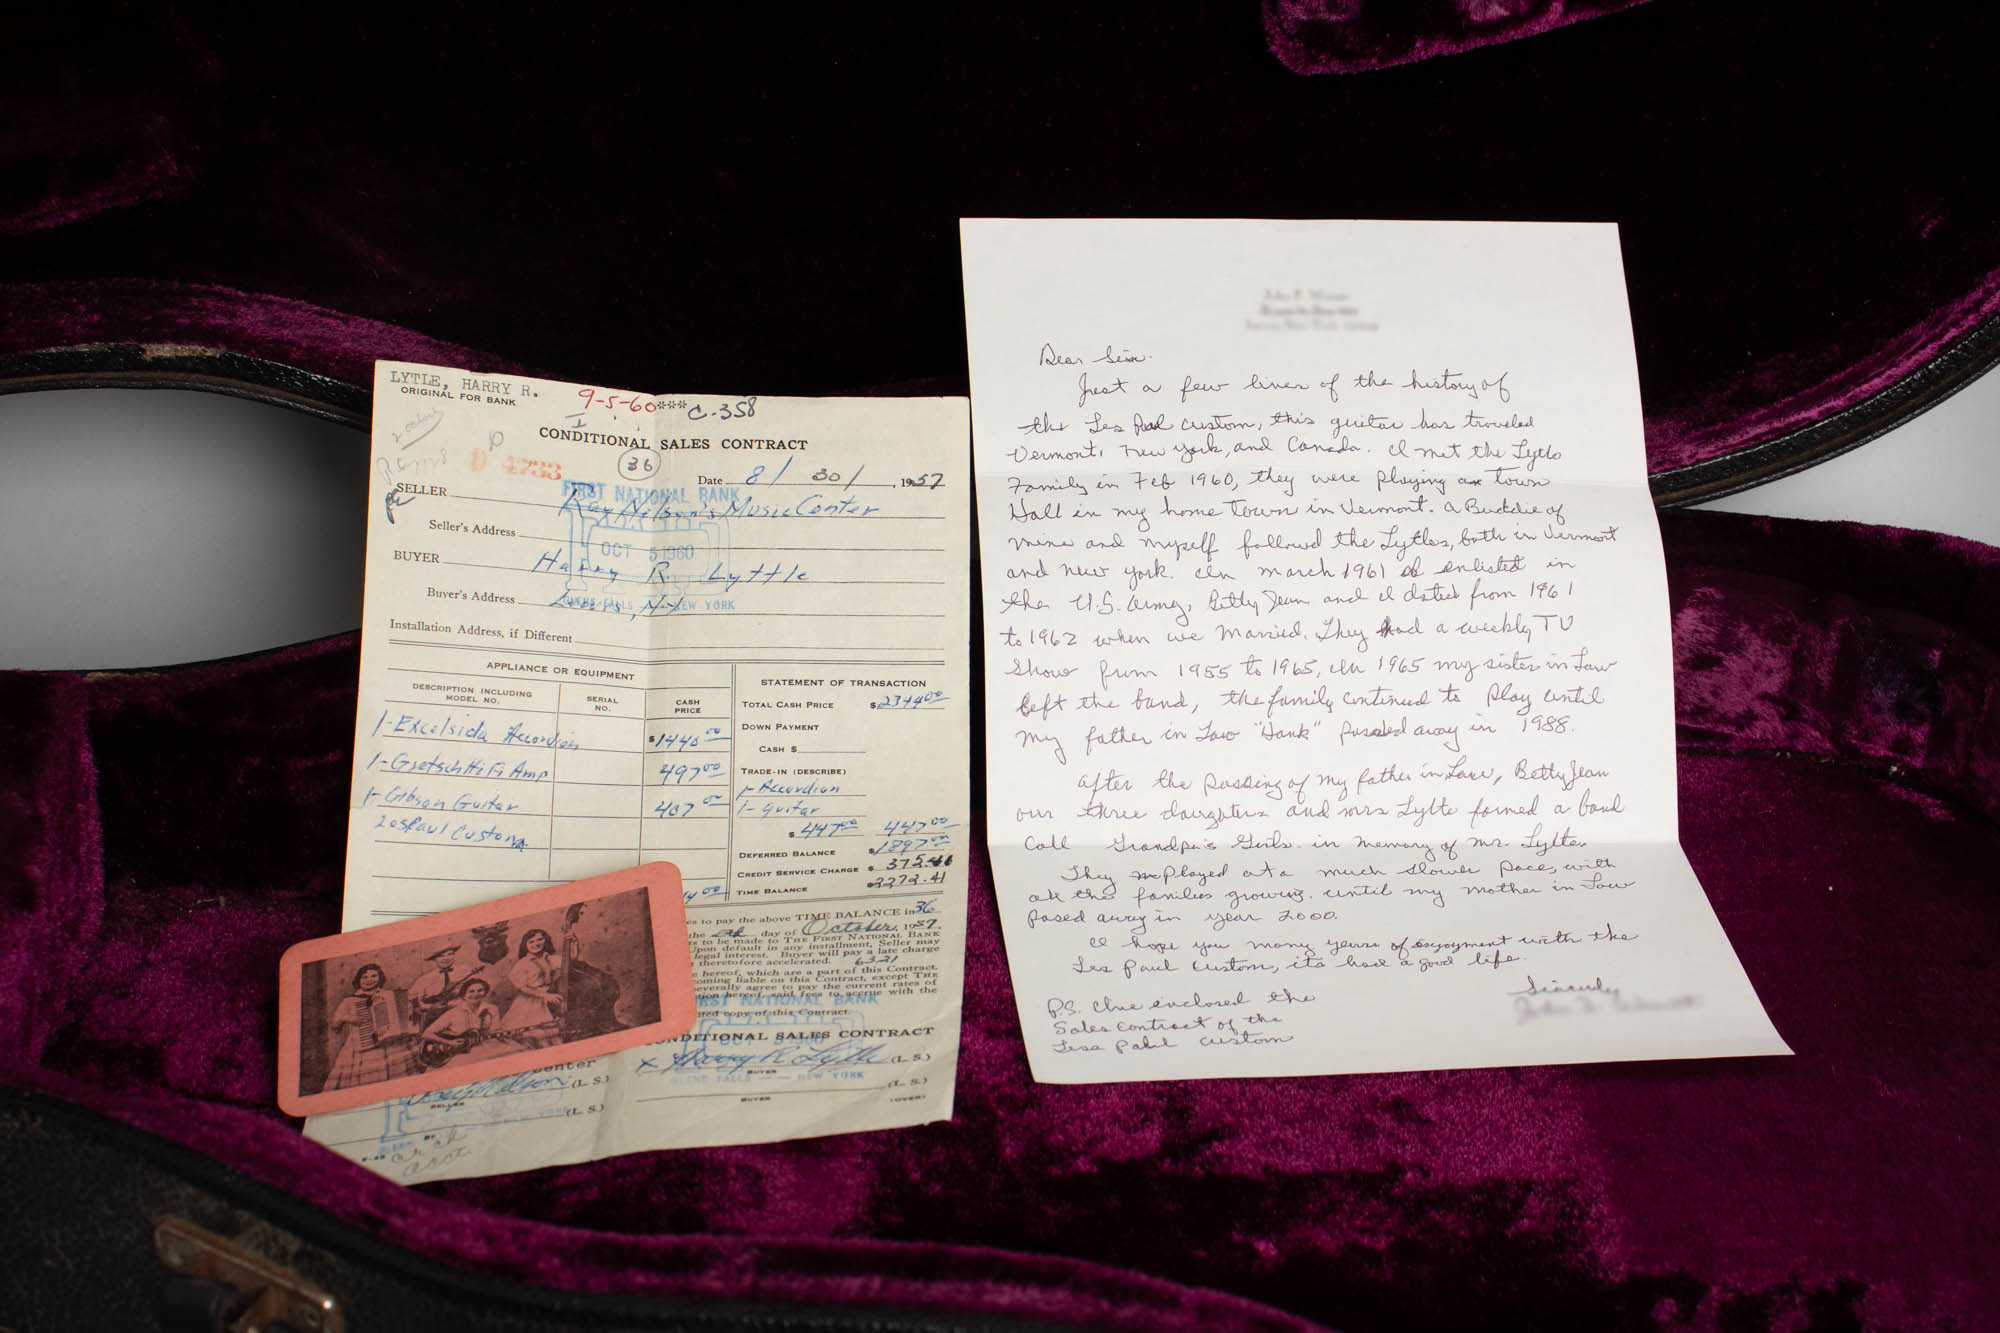 LYTLE, HARRY R.
ORIGINAL FOR BANK
9-5-60*** C-358
CONDITIONAL SALES CONTRACT
D 4733
36
Date 8/ 30/, 1957
FIRST NATIONAL BANK
SELLER Ray Nilson's Music Center
Seller's Address
OCT 5 1960
BUYER Harry R. Lyttle
Buyer's Address
GLENS FALLS, NEW YORK
Installation Address, if Different
APPLIANCE OR EQUIPMENT
DESCRIPTION INCLUDING MODEL NO.
SERIAL NO.
CASH PRICE
1-Excelsida Accordion $1440 00
1-Gretsch Hi Fi Amp 497 00
1-Gibson Guitar 407 00
Les Paul Custom
STATEMENT OF TRANSACTION
TOTAL CASH PRICE $2344 00
DOWN PAYMENT
CASH $
TRADE-IN (DESCRIBE)
1-Accordion
1-guitar
$447 00 447 00
DEFERRED BALANCE $1897 00
CREDIT SERVICE CHARGE $ 375.41
TIME BALANCE $2272.41
es to pay the above TIME BALANCE in 36
the day of October, 1957,
s to be made to THE FIRST NATIONAL BANK
Upon default in any installment, Seller may
legal interest. Buyer will pay a late charge
theretofore accelerated. 63.21
hereof, which are a part of this Contract.
coming liable on this Contract, except THE
everally agree to pay the current rates of
said fees to accrue with the
FIRST NATIONAL BANK
ted copy of this Contract.
CONDITIONAL SALES CONTRACT
x Harry R. Lytle (L. S.)
BUYER
GLENS FALLS — NEW YORK
(L. S.)
BUYER
(OVER)
enter
(L. S.)
SELLER
(L. S.)
BY
Dear Sir.
Just a few lines of the history of
the Les Paul custom, this guitar has traveled
Vermont, New York, and Canada. I met the Lytle
Family in Feb 1960, they were playing a town
Hall in my home town in Vermont. A Buddie of
mine and myself followed the Lytles, both in Vermont
and New York. In March 1961 I enlisted in
the U.S. Army, Betty Jean and I dated from 1961
to 1962 when we married. They had a weekly TV
show from 1955 to 1965, in 1965 my sister in Law
left the band, the family continued to play until
my father in Law "Hank" passed away in 1988.
After the passing of my father in Law, Betty Jean
our three daughters and mrs Lytle formed a band
Call Grandpa's Girls in memory of Mr. Lytle.
They played at a much slower pace, with
all the families growing. until my mother in Law
passed away in year 2000.
I hope you many years of enjoyment with the
Les Paul custom, its had a good life.
Sincerely
P.S. I've enclosed the
Sales contract of the
Less Paul custom